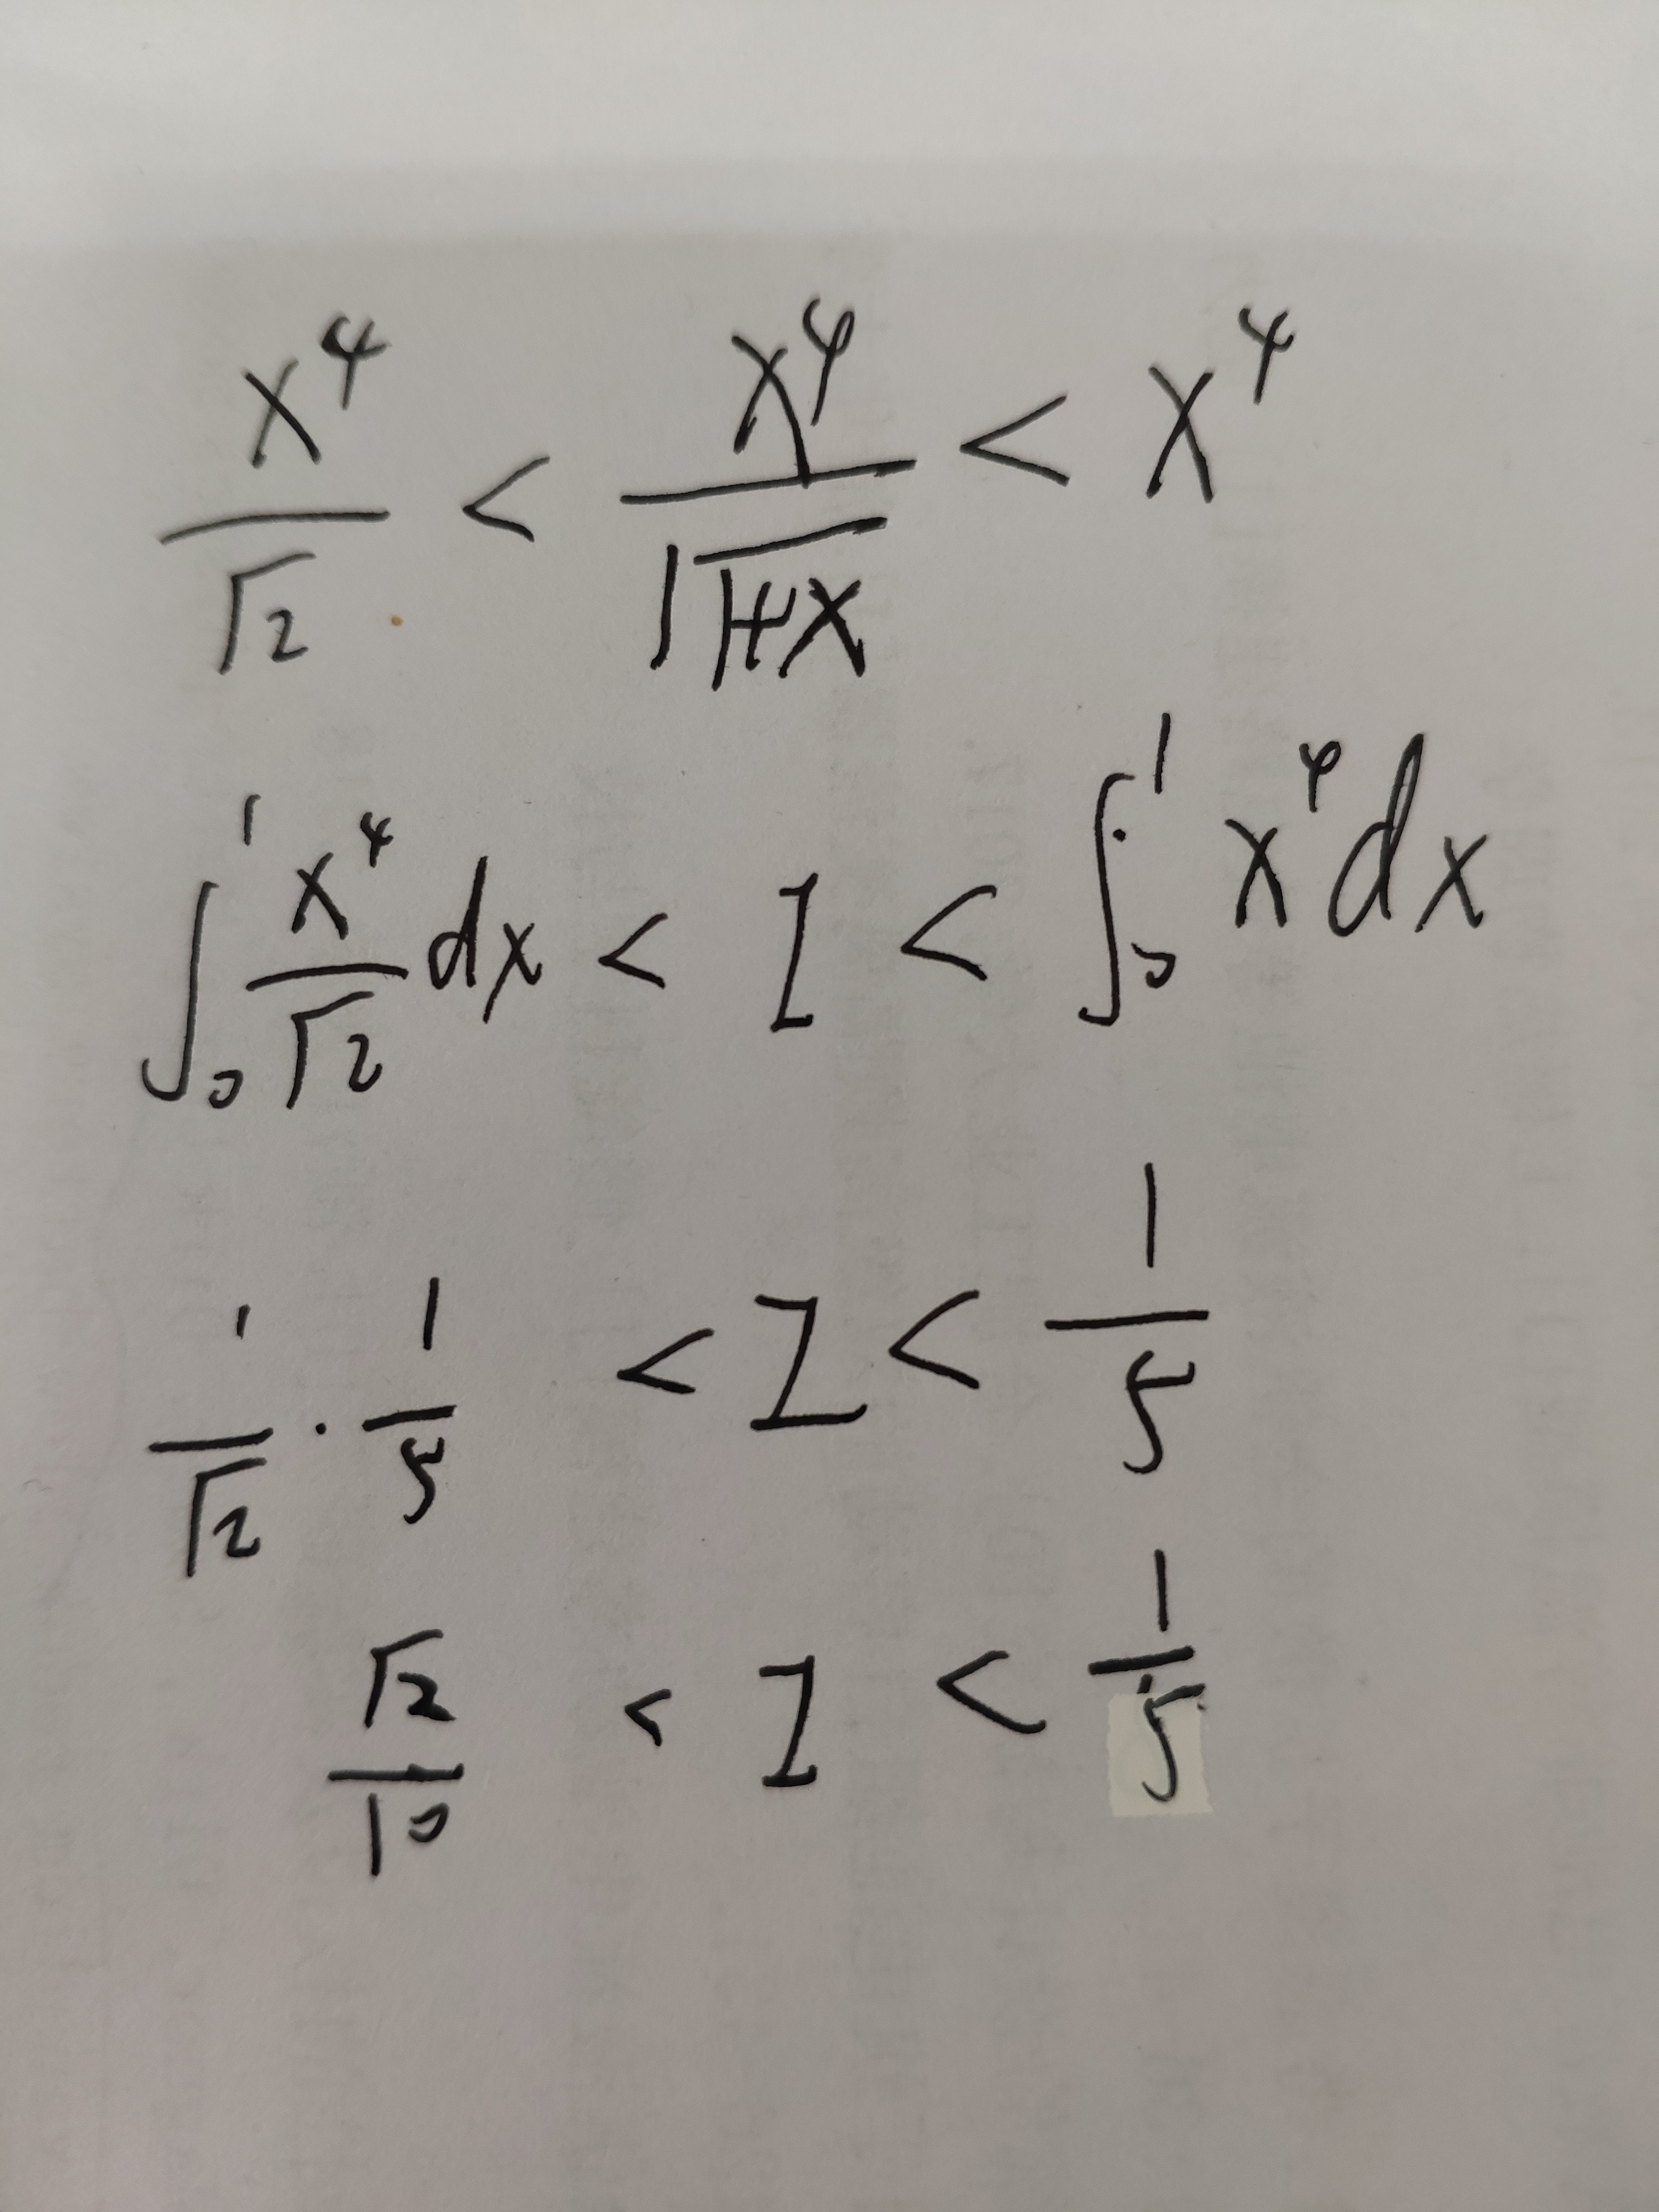 x⁴/√2 < x⁴/√(1+x) < x⁴
∫₀¹ x⁴/√2 dx < I < ∫₀¹ x⁴ dx
1/√2 · 1/5 < I < 1/5
√2/10 < I < 1/5